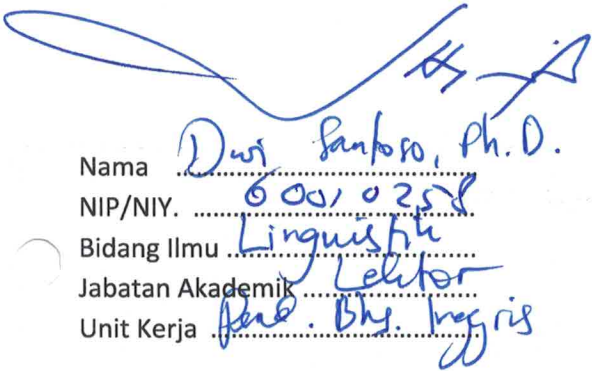 Nama Dwi Santoso, Ph.D.
NIP/NIY. 60010258
Bidang Ilmu Linguistik
Jabatan Akademik Lektor
Unit Kerja Pend. Bhs. Inggris